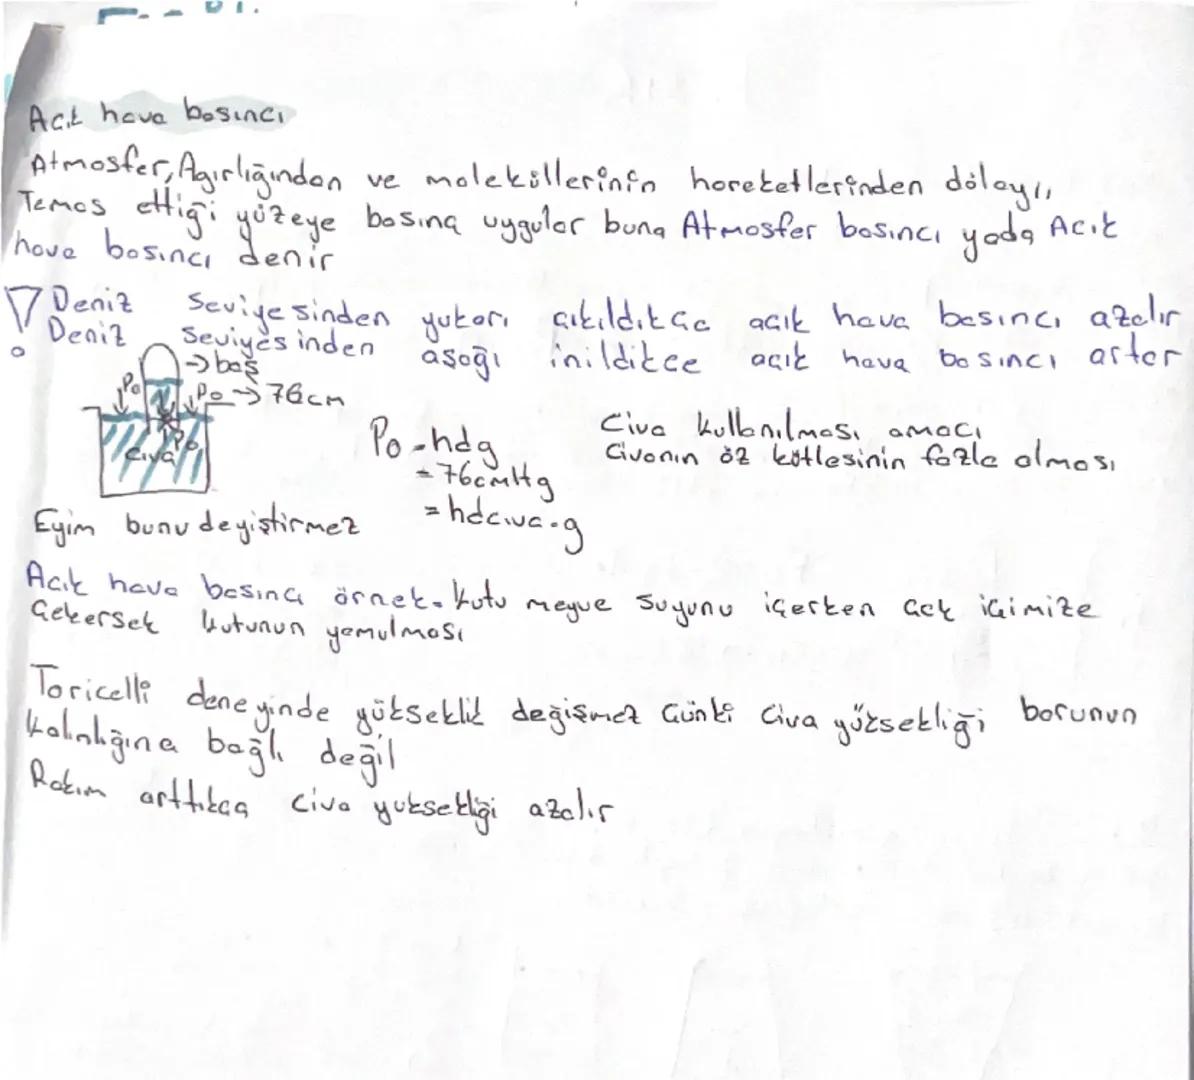 Açık hava basıncı
Atmosfer, Ağırlığından ve moleküllerinin hareketlerinden dolayı,
Temas ettiği yüzeye basınç uygular buna Atmosfer basıncı yada Açık
hava basıncı denir
! Deniz Seviyesinden yukarı çıkıldıkça açık hava basıncı azalır
Deniz Seviyesinden aşağı inildikçe açık hava basıncı artar
→ boş
Po Po → 76cm
Po
Civa
Po = hdg
= 76cmHg
= hdcıva.g
Civa kullanılması amacı
Civanın öz kütlesinin fazla olması
Eyim bunu deyiştirmez
Açık hava basıncı örnek. Kutu meyve suyunu içerken çok içimize
Çekersek kutunun yamulması
Toricelli deneyinde yükseklik değişmez Çünki Civa yüksekliği borunun
kalınlığına bağlı değil
Rakım arttıkça Civa yuksekliği azalır